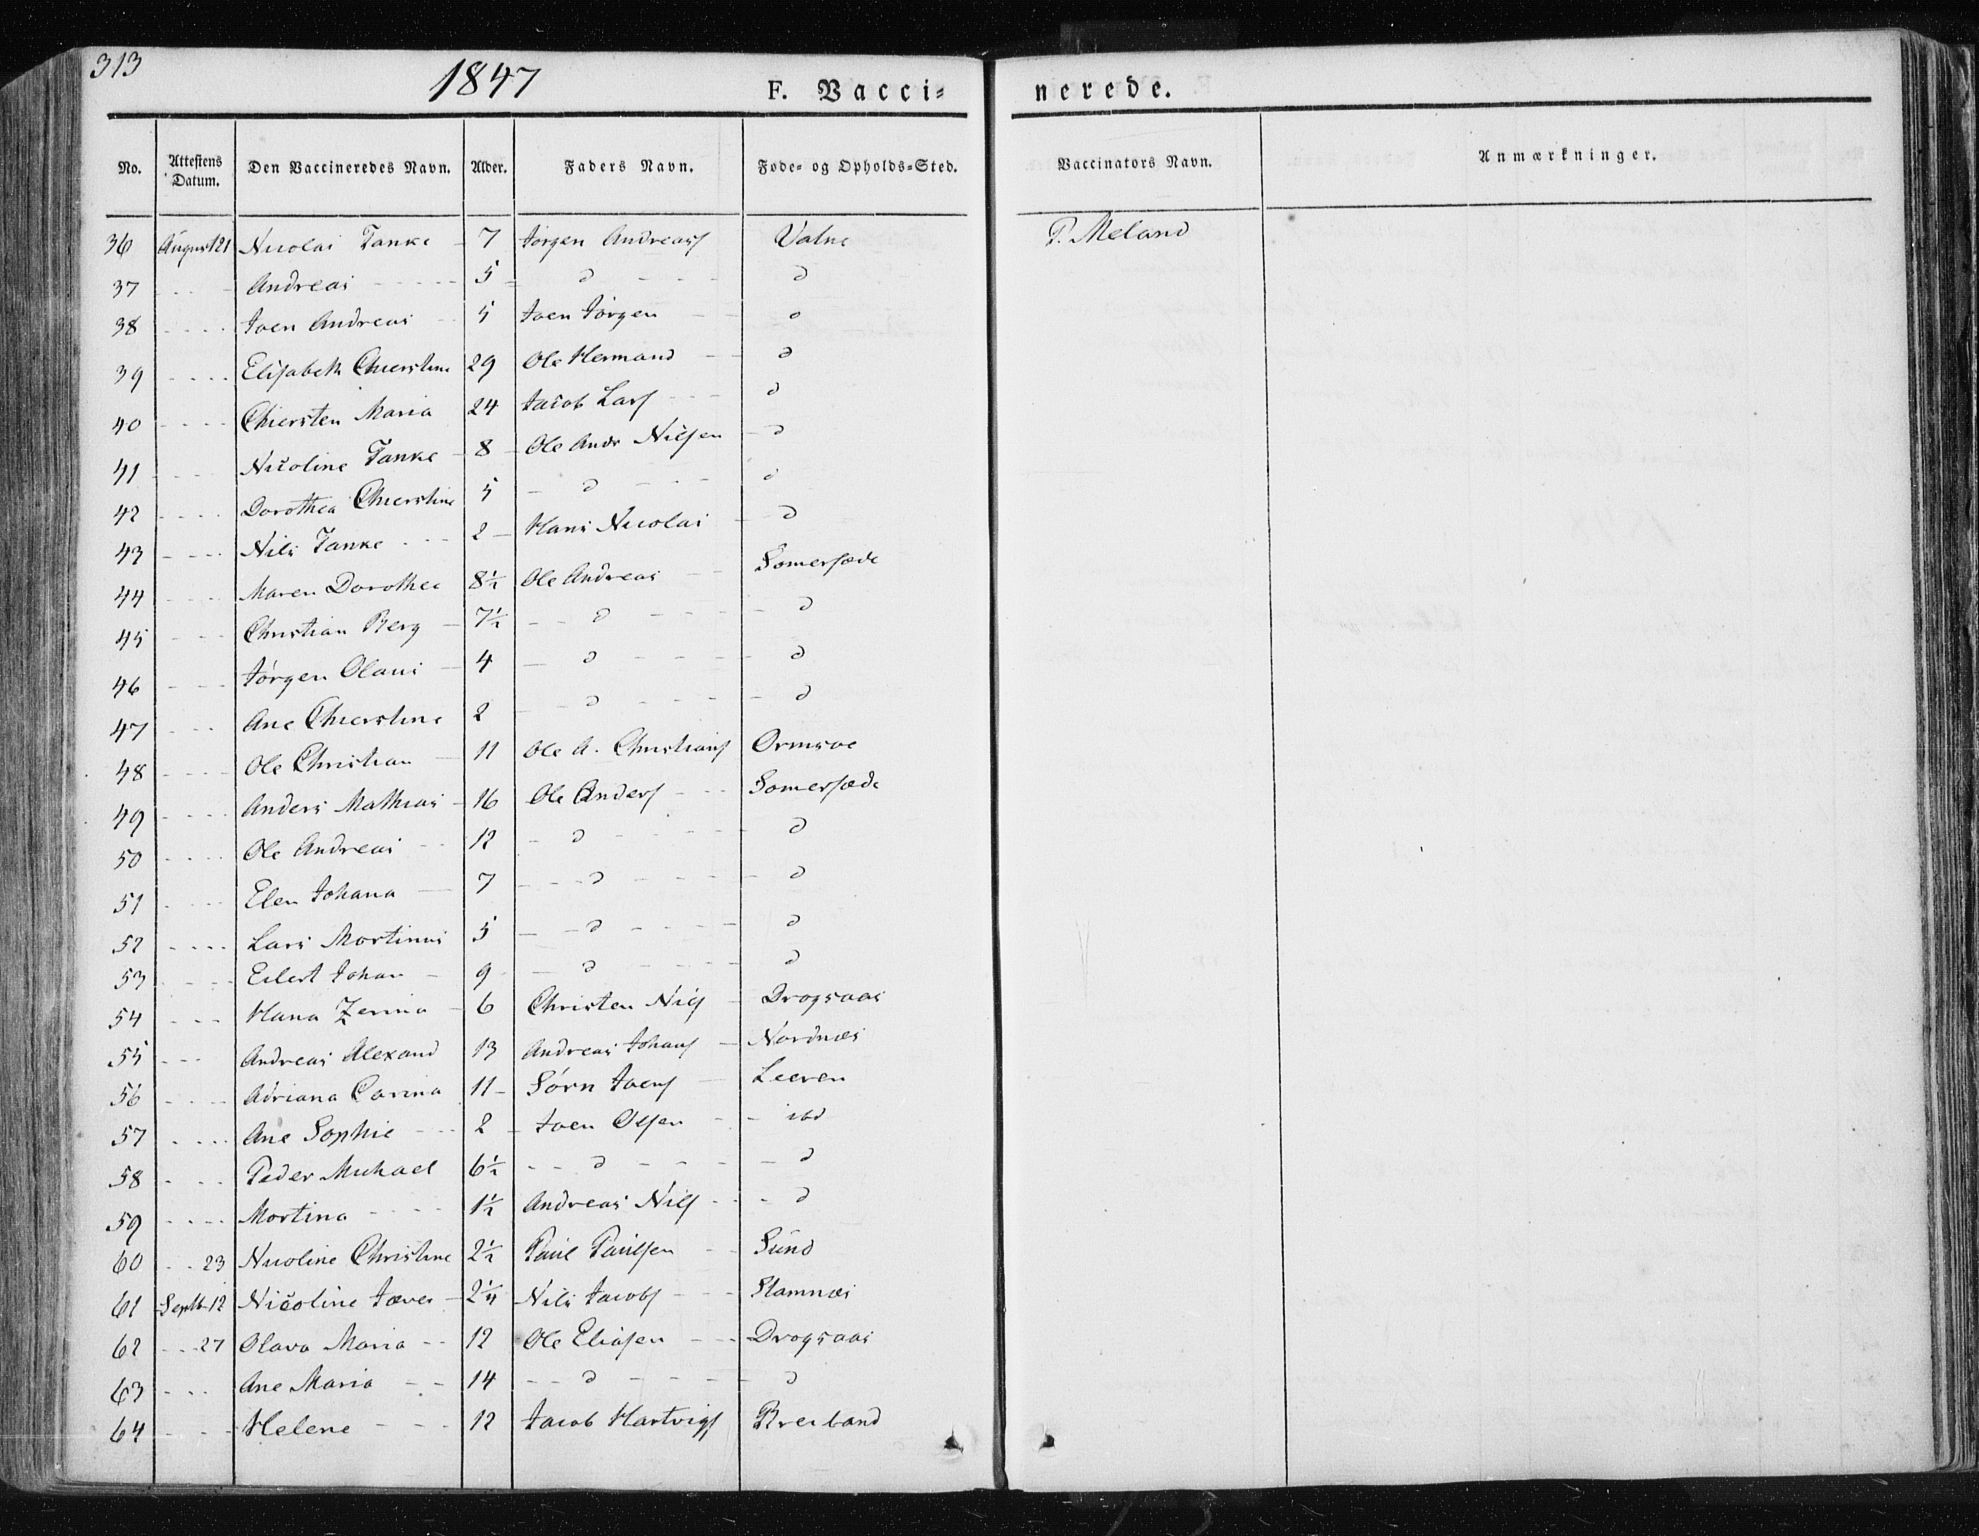 313
1847
F. Vacci- nerede.
No. Attestens Datum. Den Vaccineredes Navn. Alder. Faders Navn. Føde- og Opholds-Sted. Vaccinators Navn. Anmærkninger.
36 August 21 Nicolai Tanke - 7 Jørgen Andreass Valne P. Meland
37 - - - Andreas - - - 5 - d - - - d
38 - - - Joen Andreas - 5 Joen Jørgen - - d
39 - - - Elisabeth Chierstine 29 Ole Hermand - - d
40 - - - Chiersten Maria 24 Jacob Lars - - - d
41 - - - Nicoline Tanke - 8 - Ole Andr Nilsen - d
42 - - - Dorothea Chierstine 5 - d - - - d
43 - - - Nils Tanke - - - 2 - Hans Nicolai - d
44 - - - Maren Dorothea 8½ Ole Andreas - - Somersæde
45 - - - Christian Berg - 7½ - - d - - - - d
46 - - - Jørgen Olaus - 4 - d - - - d
47 - - - Ane Chierstine 2 - d - - - - d
48 - - - Ole Christian - 11 Ole A. Christians Ormsoe
49 - - - Anders Mathias - 16 Ole Anders - - - Somersæde
50 - - - Ole Andreas - - 12 - d - - - d
51 - - - Elen Johana - 7 - - - d - - - - d
52 - - - Lars Mortinus 5 - - d - - - d
53 - - - Eilert Johan - 9 - - d - - - d
54 - - - Hana Zerina - 6 Christen Nils - Drogsaas
55 - - - Andreas Alexand 13 Andreas Johans - Nordnæs
56 - - - Adriana Carina 11 - Sørn Joens - Leeren
57 - - - Ane Sophie - - - 2 - Joen Olsen - - ibd
58 - - - Peder Michael 6½ - - d - - - - d
59 - - - Mortina - - - - 1½ Andreas Nils - - - d
60 - - 23 Nicoline Christine 2½ Paul Paulsen - - Sund
61 Septb 12 Nicoline - 2¼ Nils Jacobs - - - Stamnæs
62 - - 27 Olava Maria - - 12 Ole Eliasen - - - Drogsaas
63 - - - Ane Maria - - 14 - - d - - - - d
64 - - - Helene - - - 12 Jacob Hartvigs Breiband